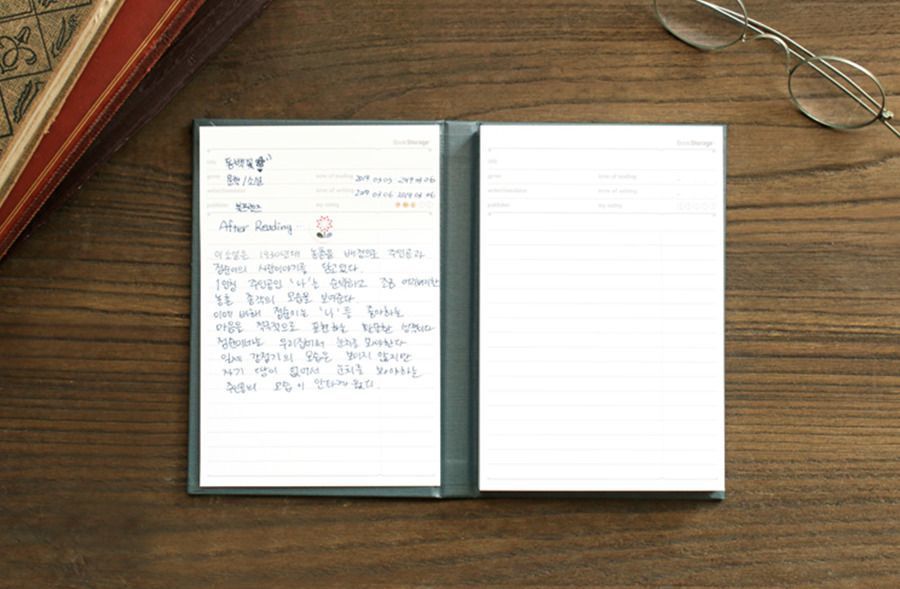 BookStorage
title 동백꽃
genre 문학/소설 time of reading 2019 03 03 -2019 03 06
writer/translator time of writing 2019 03 06 2019 03 06
publisher my rating
After Reading
이 소설은 1930년대 농촌을 배경으로 주인공과
점순이의 사랑이야기를 담고있다.
1인칭 주인공인 '나'는 순박하고 조금 어리버리한
농촌 총각의 모습을 보여준다.
이에 비해 점순이는 '나'를 좋아하는
마음을 적극적으로 표현하는 활달한 성격이다
점순이네는 우리집에서 눈치를 보아한다
일제 강점기의 모습은 보이지 않지만
자기 땅이 없어서 눈치를 봐야하는
주인공의 모습이 안타까웠다.
BookStorage
title
genre time of reading
writer/translator time of writing
publisher my rating